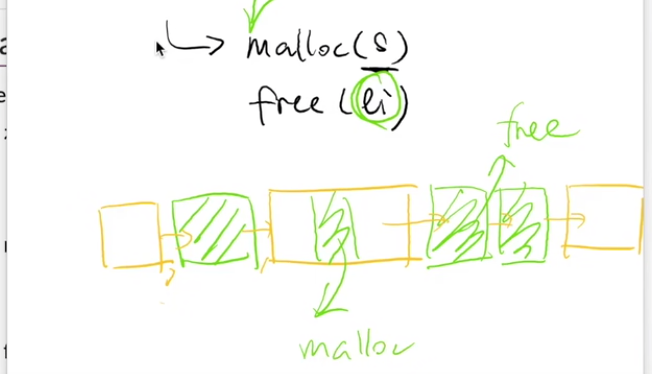 malloc(s)
free(li)
free
malloc